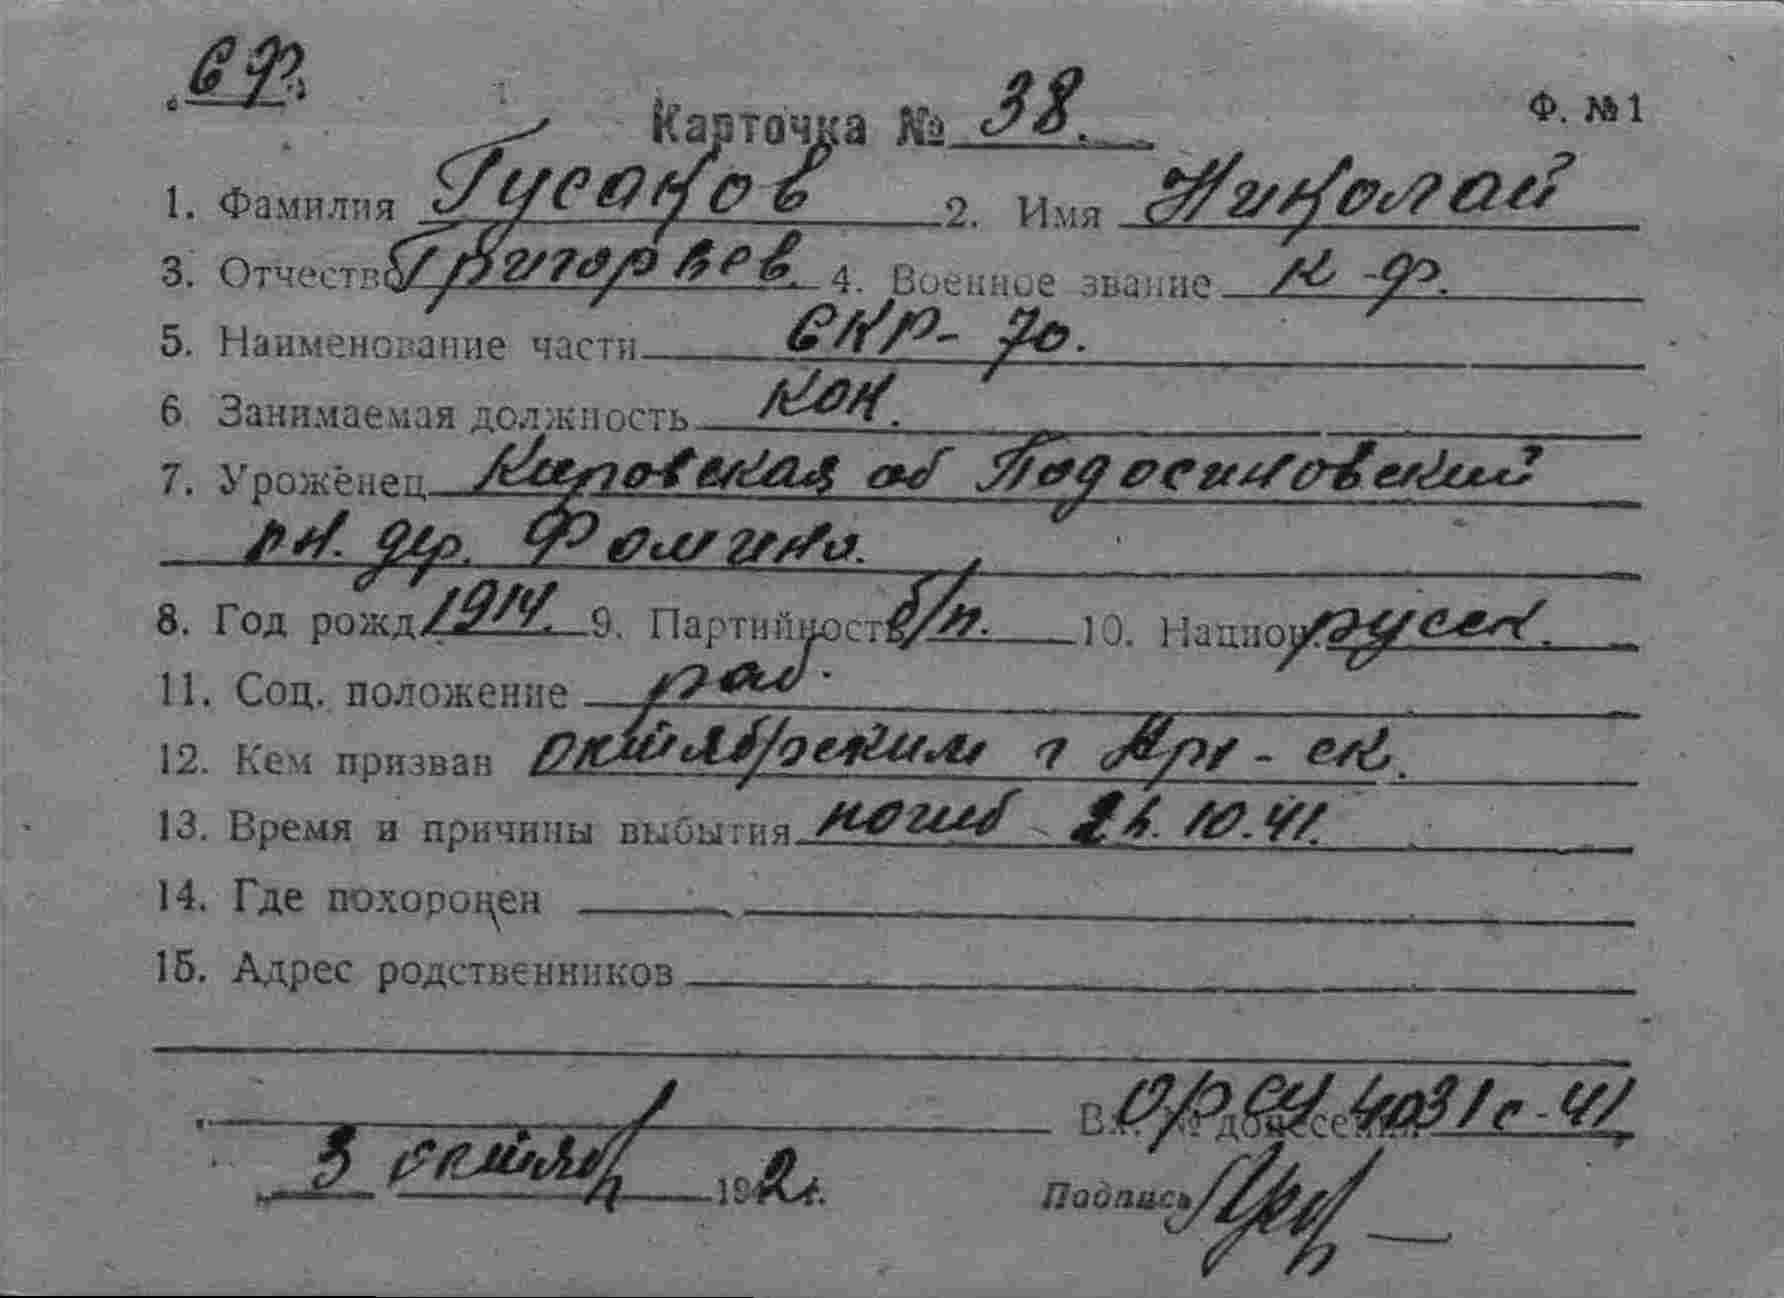 СФ.
Карточка № 38. Ф. №1
1. Фамилия Гусаков 2. Имя Николай
3. Отчество Григорьев. 4. Военное звание к-ф.
5. Наименование части СКР-70.
6. Занимаемая должность кон.
7. Уроженец Кировская об Подосиновский
рн. дер. Фомино.
8. Год рожд 1914. 9. Партийность б/п. 10. Национ. русск.
11. Соц. положение раб.
12. Кем призван октябрьским г Арх-ск.
13. Время и причины выбытия погиб 10.41.
14. Где похоронен
15. Адрес родственников
Вх. № донесения ОРСУ 4031с-41
3 октябр 1942г.
Подпись